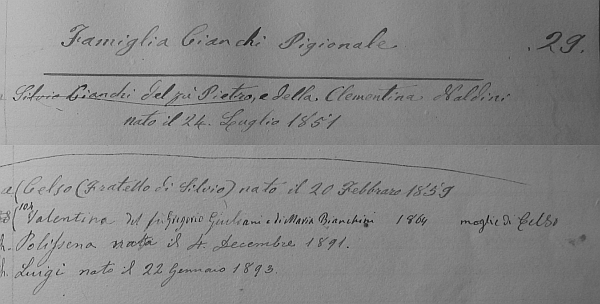 Famiglia Cianchi Pigionale 29.
Silvio Cianchi del fu Pietro, e della Clementina Naldini
nato il 24. Luglio 1851
Celso (Fratello di Silvio) nato il 20 Febbraro 1859
Valentina del fu Gregorio Giuliani e di Maria Bianchini 1864 moglie di Celso
Polissena nata il 4. Decembre 1891.
Luigi nato il 22 Gennaro 1893.